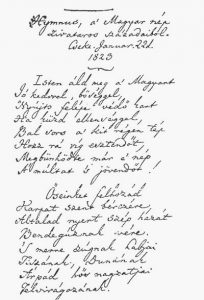 Hymnus, a' Magyar nép
zivataros századaiból.
Cseke. Januar. 22d.
1823
Isten áldd meg a' Magyart
Jó kedvvel, bőséggel,
Nyújts feléje védő kart
Ha küzd ellenséggel,
Bal sors a' kit régen tép
Hozz rá víg esztendőt,
Megbűnhődte már e' nép
A' multat 's jövendőt!
Őseinket felhozád
Kárpát szent bérczére,
Általad nyert szép hazát
Bendegúznak vére.
'S merre zúgnak habjai
Tiszának, Dunának
Árpád hős magzatjai
Felvirágozának.